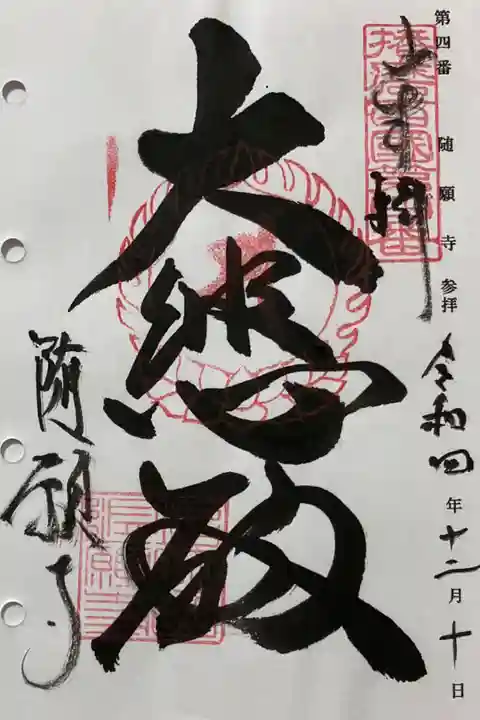 第四番 随願寺 参拝
令和四年十二月十日
奉拝
大悲殿
随願寺